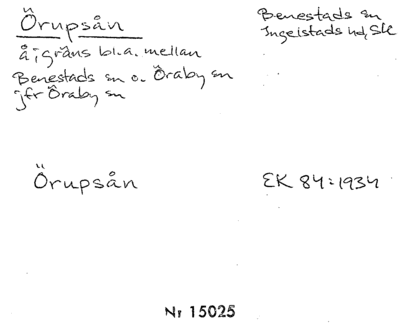 Örupsån
å; gräns bl.a. mellan
Benestads sn o. Öraby sn
jfr Öraby sn
Benestads sn
Ingelstads hd, Sk
Örupsån
EK 84:1934
Nr 15025